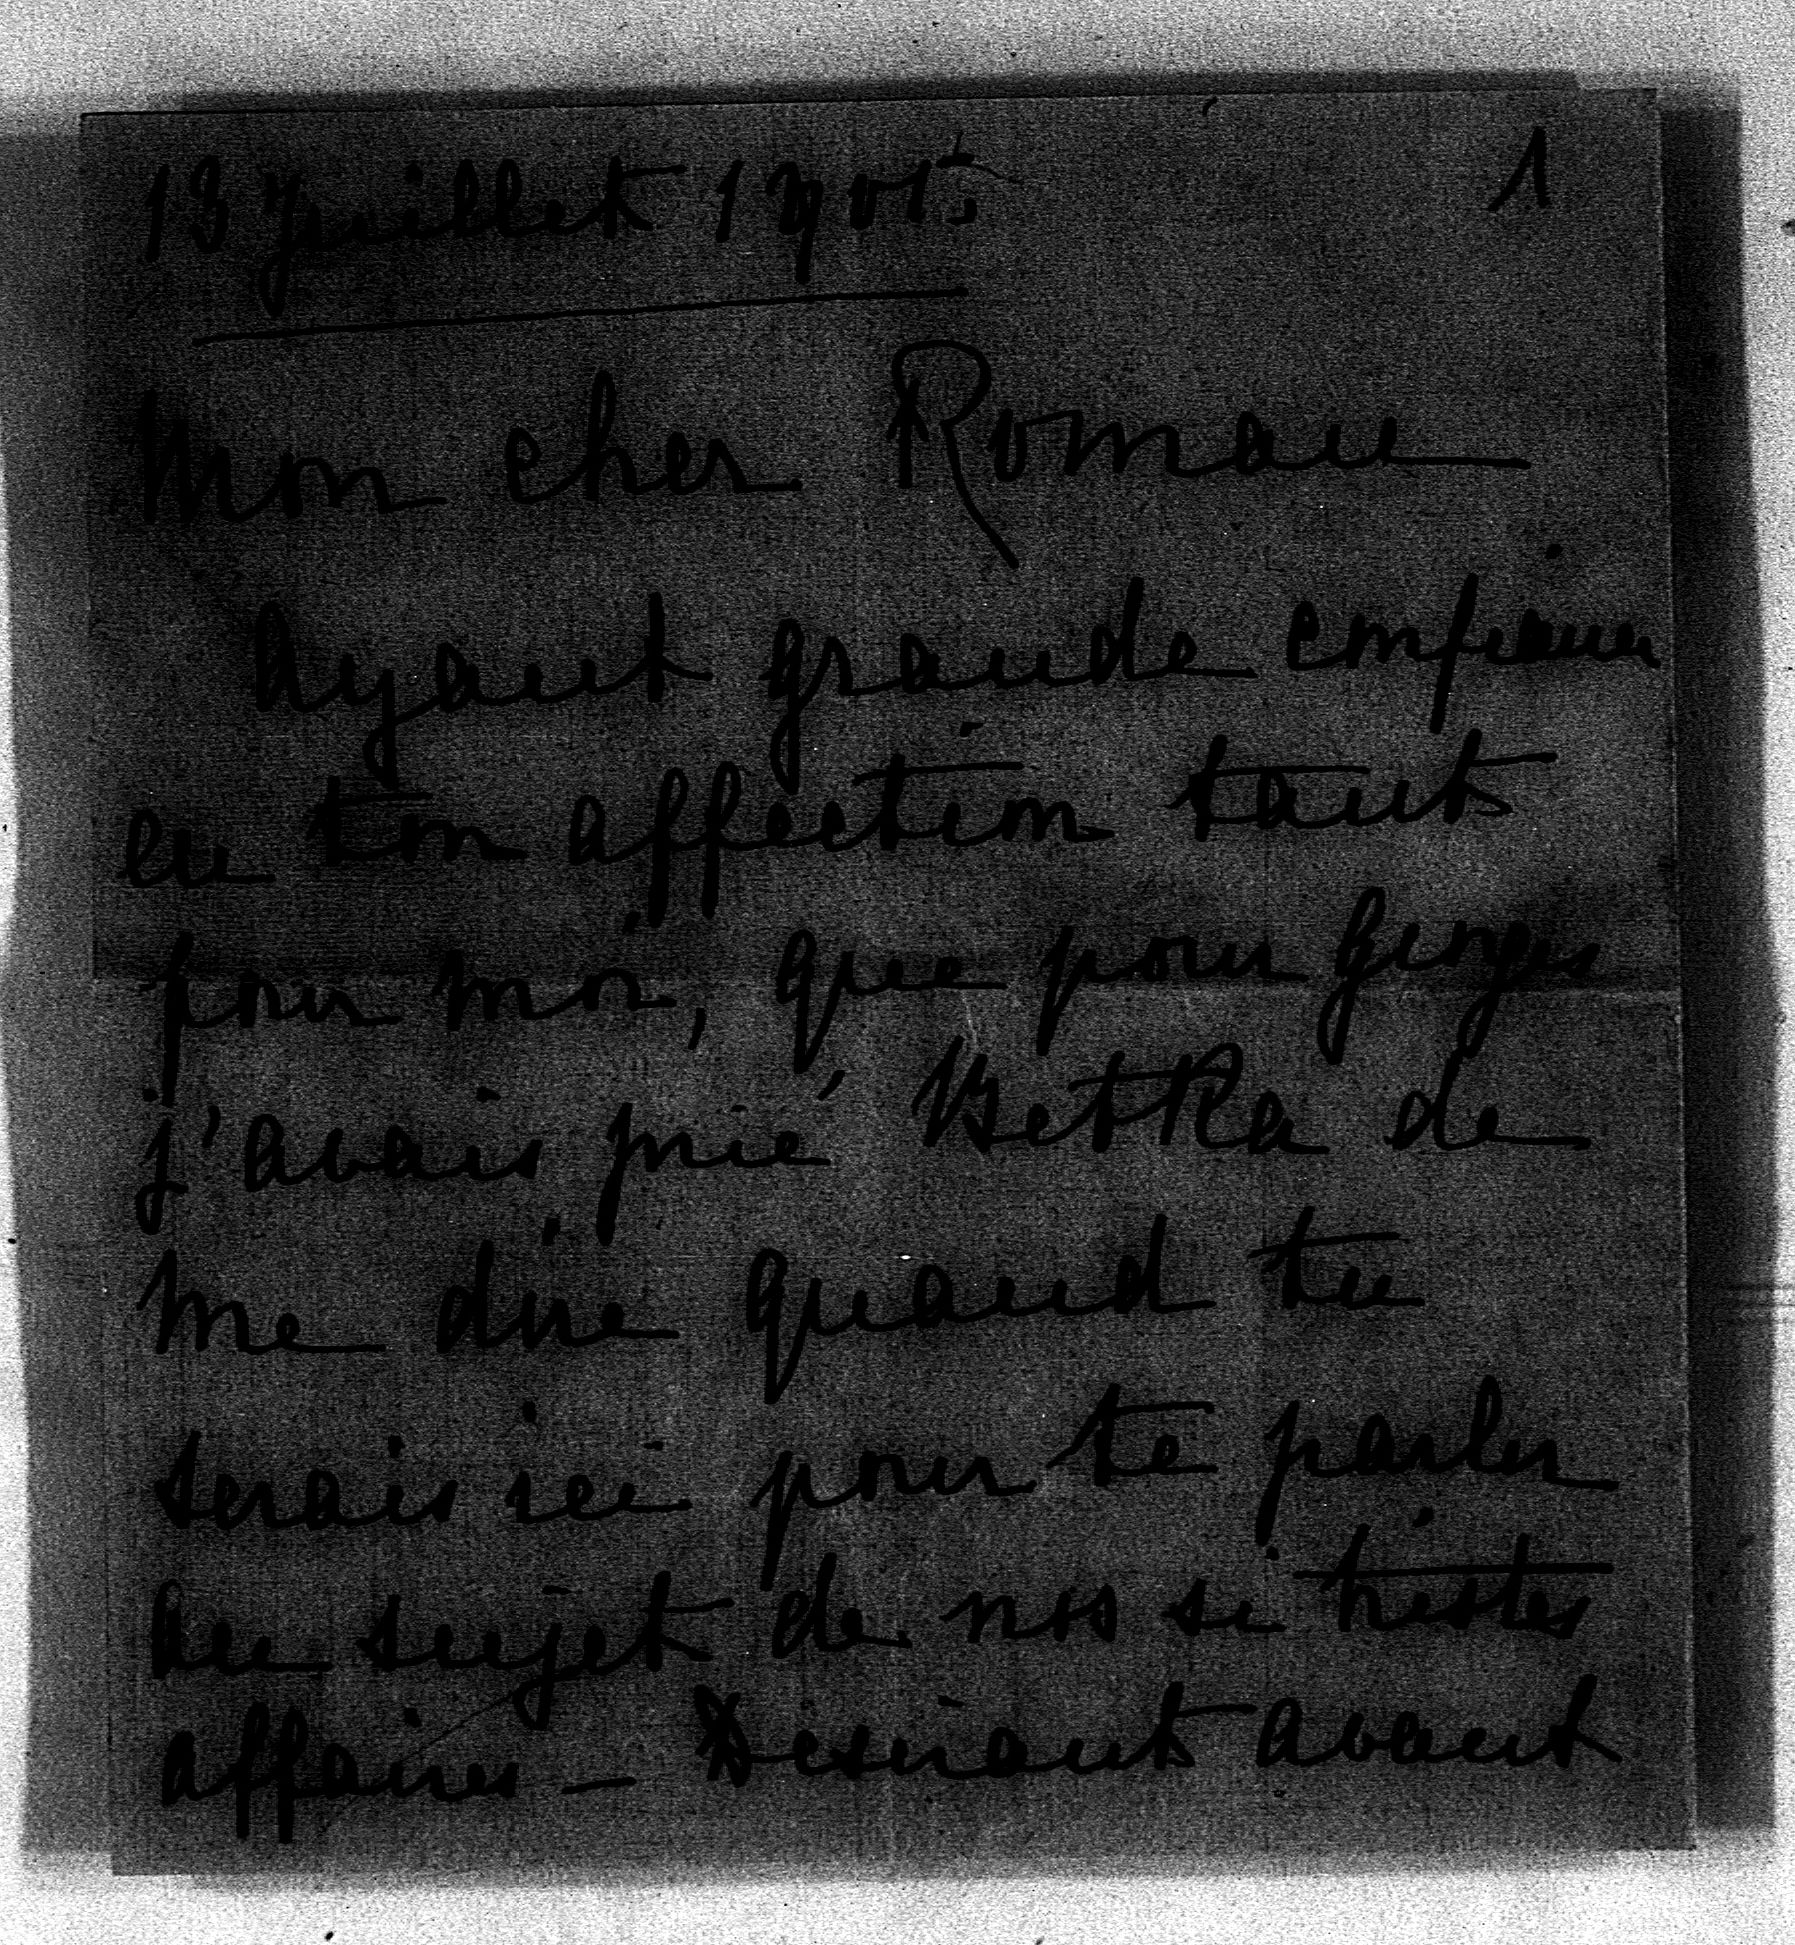 13 Juillet 1905
1
Mon cher Roman
Ayant grande confiance
en ton affection tant
pour moi, que pour Georges
j'avais prié Betka de
me dire quand tu
serais ici pour te parler
au sujet de nos si tristes
affaires – Desirant avant